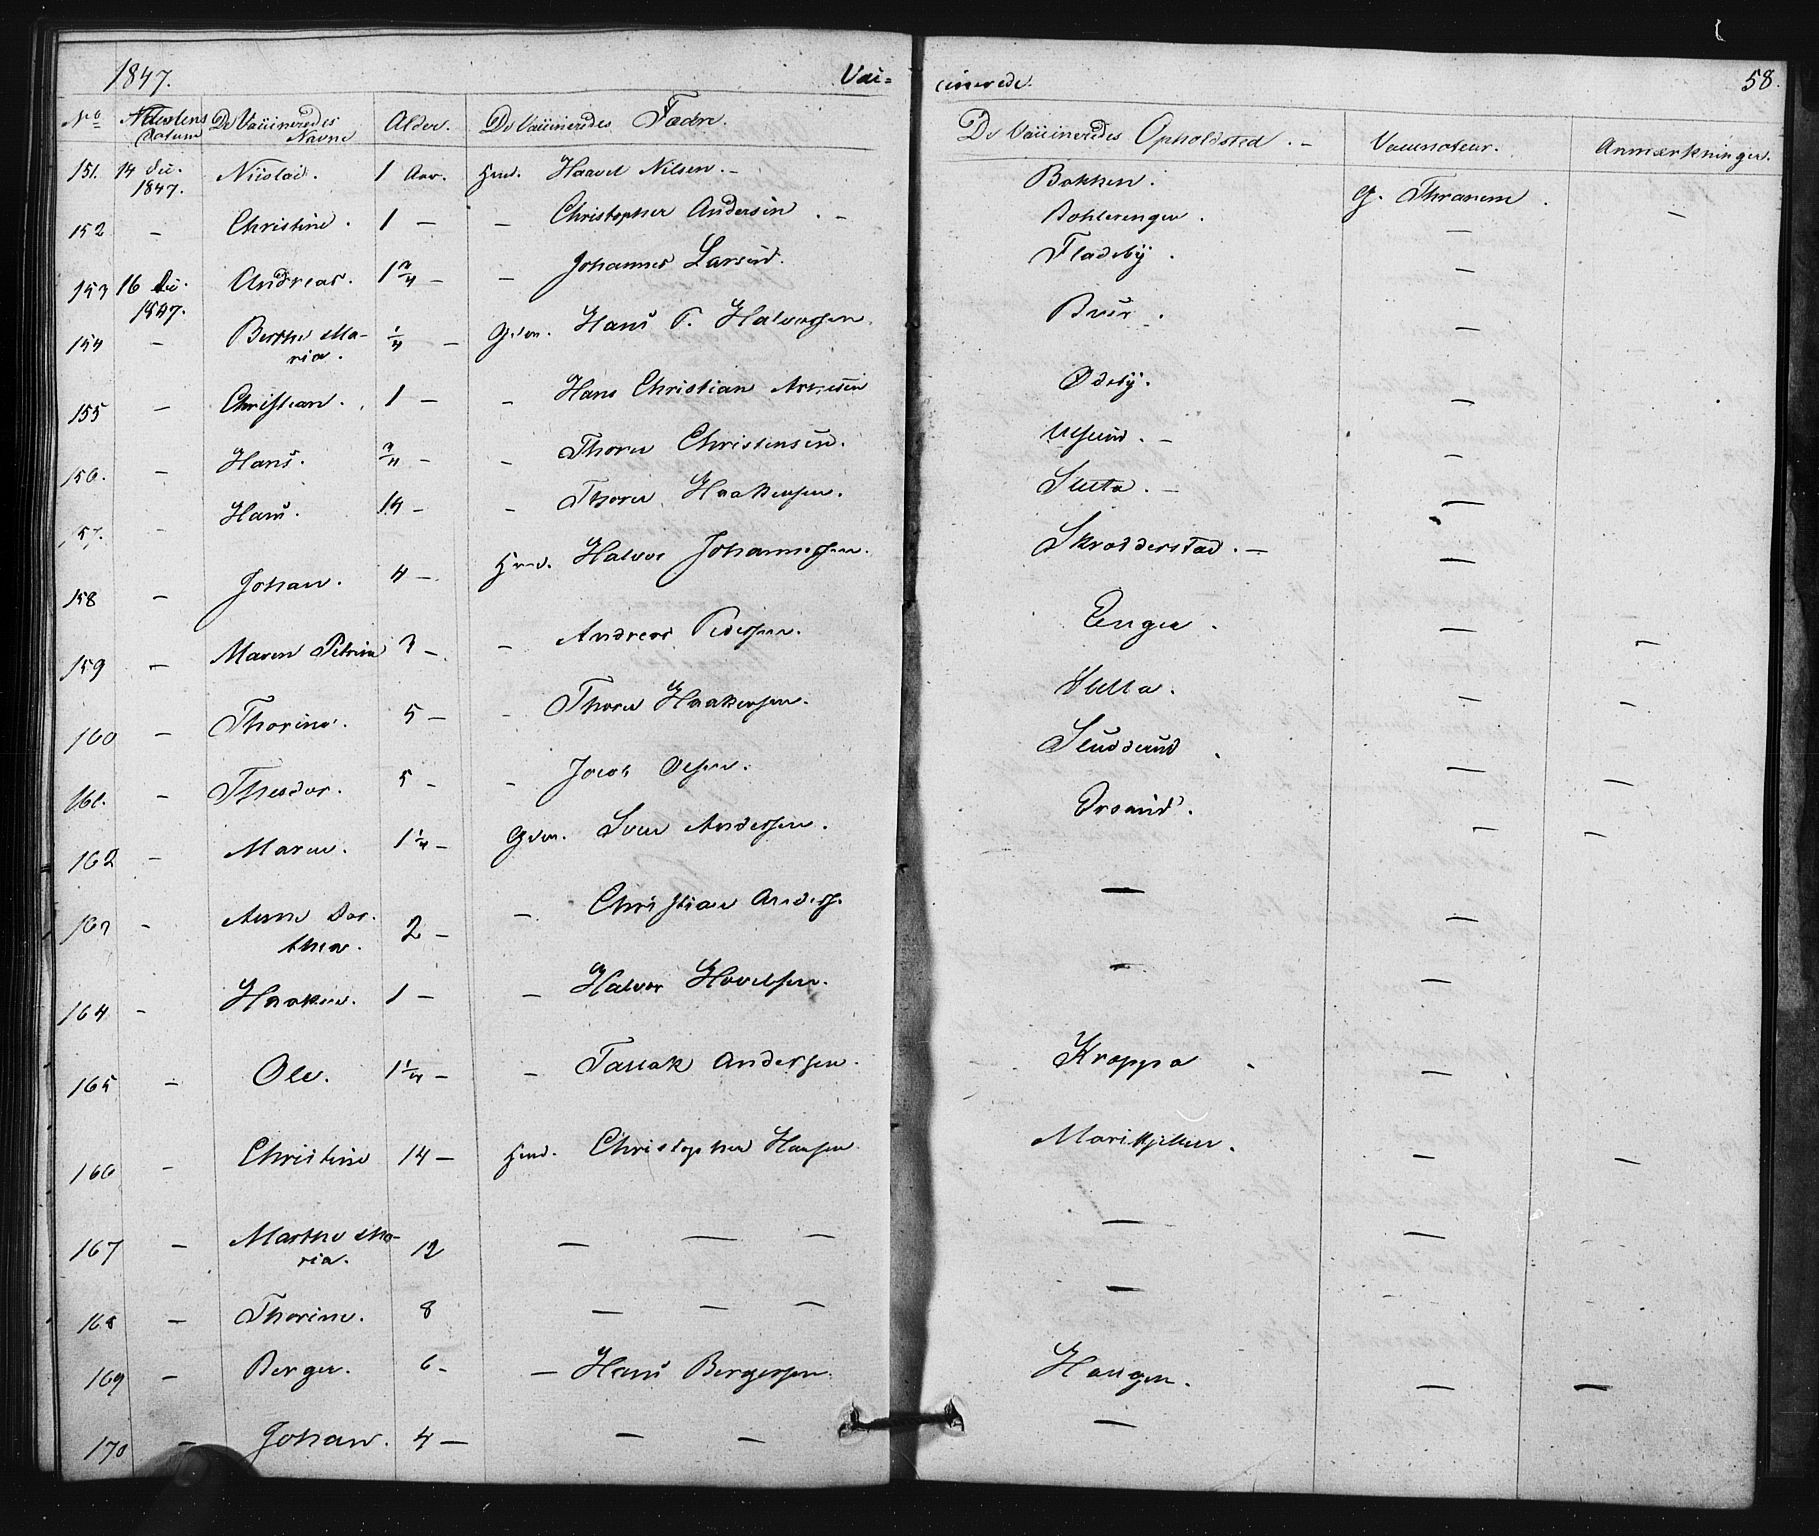 1847. Vac= cinerede. 58.
No Attestens Datum De Vaccineredes Navne Alder. De Vaccineredes Fædre. De Vaccineredes Opholdsted. - Vaccinateur. Anmærkninger.
151. 14 Dec. 1847. 1 Aar. Hmd. Haavel Nilsen. - Bakken. G. Thranem. -
152 - Christine. 1 - - Christopher Andersen. - Bohlerengen. -
153 16 Dec. 1847. Andreas. 1 3/4 - - Johannes Larsen. Fladeby. -
154 - Berthe Maria. 1/4 - Gdm. Hans P. Halvorsen. Buer. -
155 - Christian. 1 - - Hans Christian Ødeby. -
156. - Hans. 3/4 - - Thorer Christensen. -
157. - Hans. 14 - - Thorer Haakensen. Sletta. - -
158 - Johan. 4 - Hmd. Halvor Johannessen. Skrædderstad. - -
159 - Maren Petrine 3 - - Andreas Pedersen. Enger. - -
160 - Thorine. 5 - - Thorer Haakensen. Sletta. - -
161. - Theodor. 5 - - Jacob Olsen. Sludderud. - -
162 - Maren. 1 1/4 - Gdm. Sven Andersen. - -
163 - Anne Dorthea. 2 - - Christian Anders. - -
164 - Haaken. 1 - - Halvor Hovelsen. - -
165 - Ole. 1 1/4 - - Tarak Andersen. Kroppa. -
166 - Christine 14 - Hmd. Christopher Hansen. Marikjelen. - -
167 - Marthe Maria. 12 - - - - -
168 - Thorine. 8 - - - - -
169 - Berger. 6 - - Hans Bergersen. Haugen. - -
170 - Johan. 4 - - - -